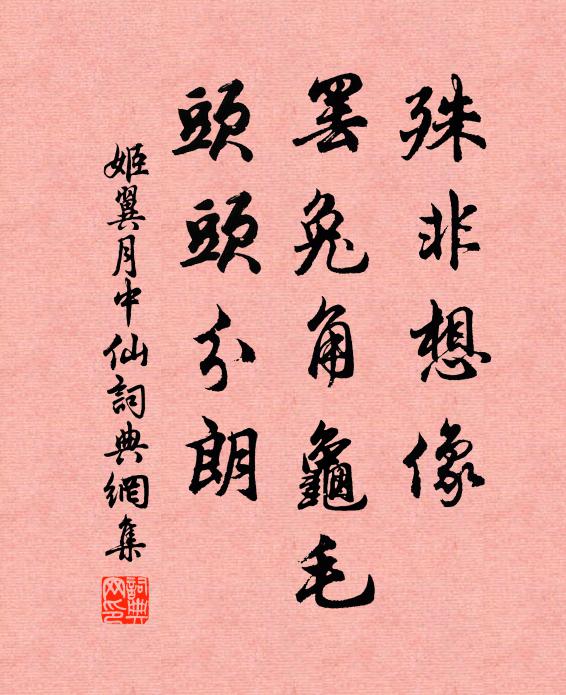 殊非想像
罢兔角龜毛
頭頭分朗
姬翼月中仙詞典網集
詞典网印